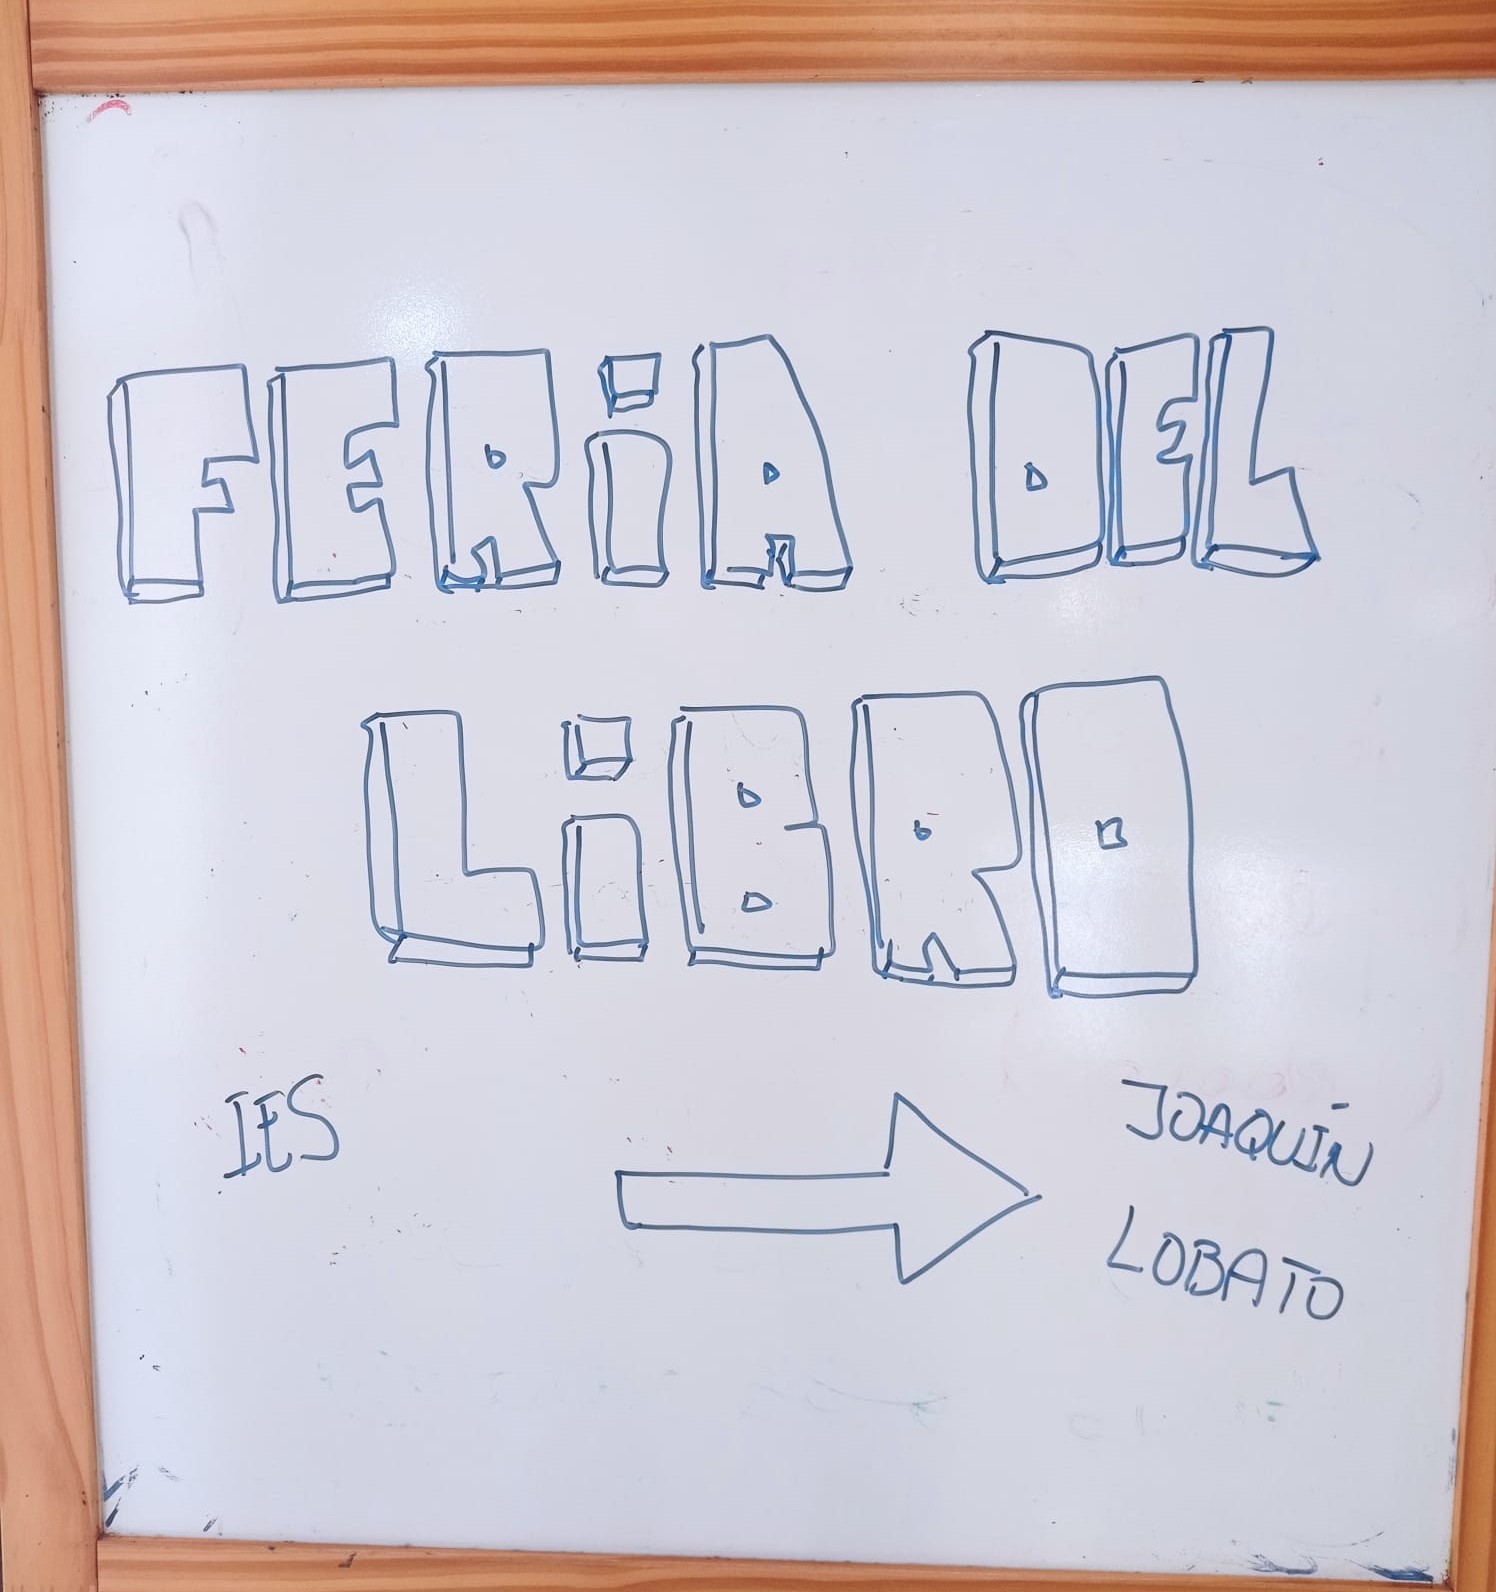 FERiA DEL
LiBRO
IES
JOAQUÍN
LOBATO